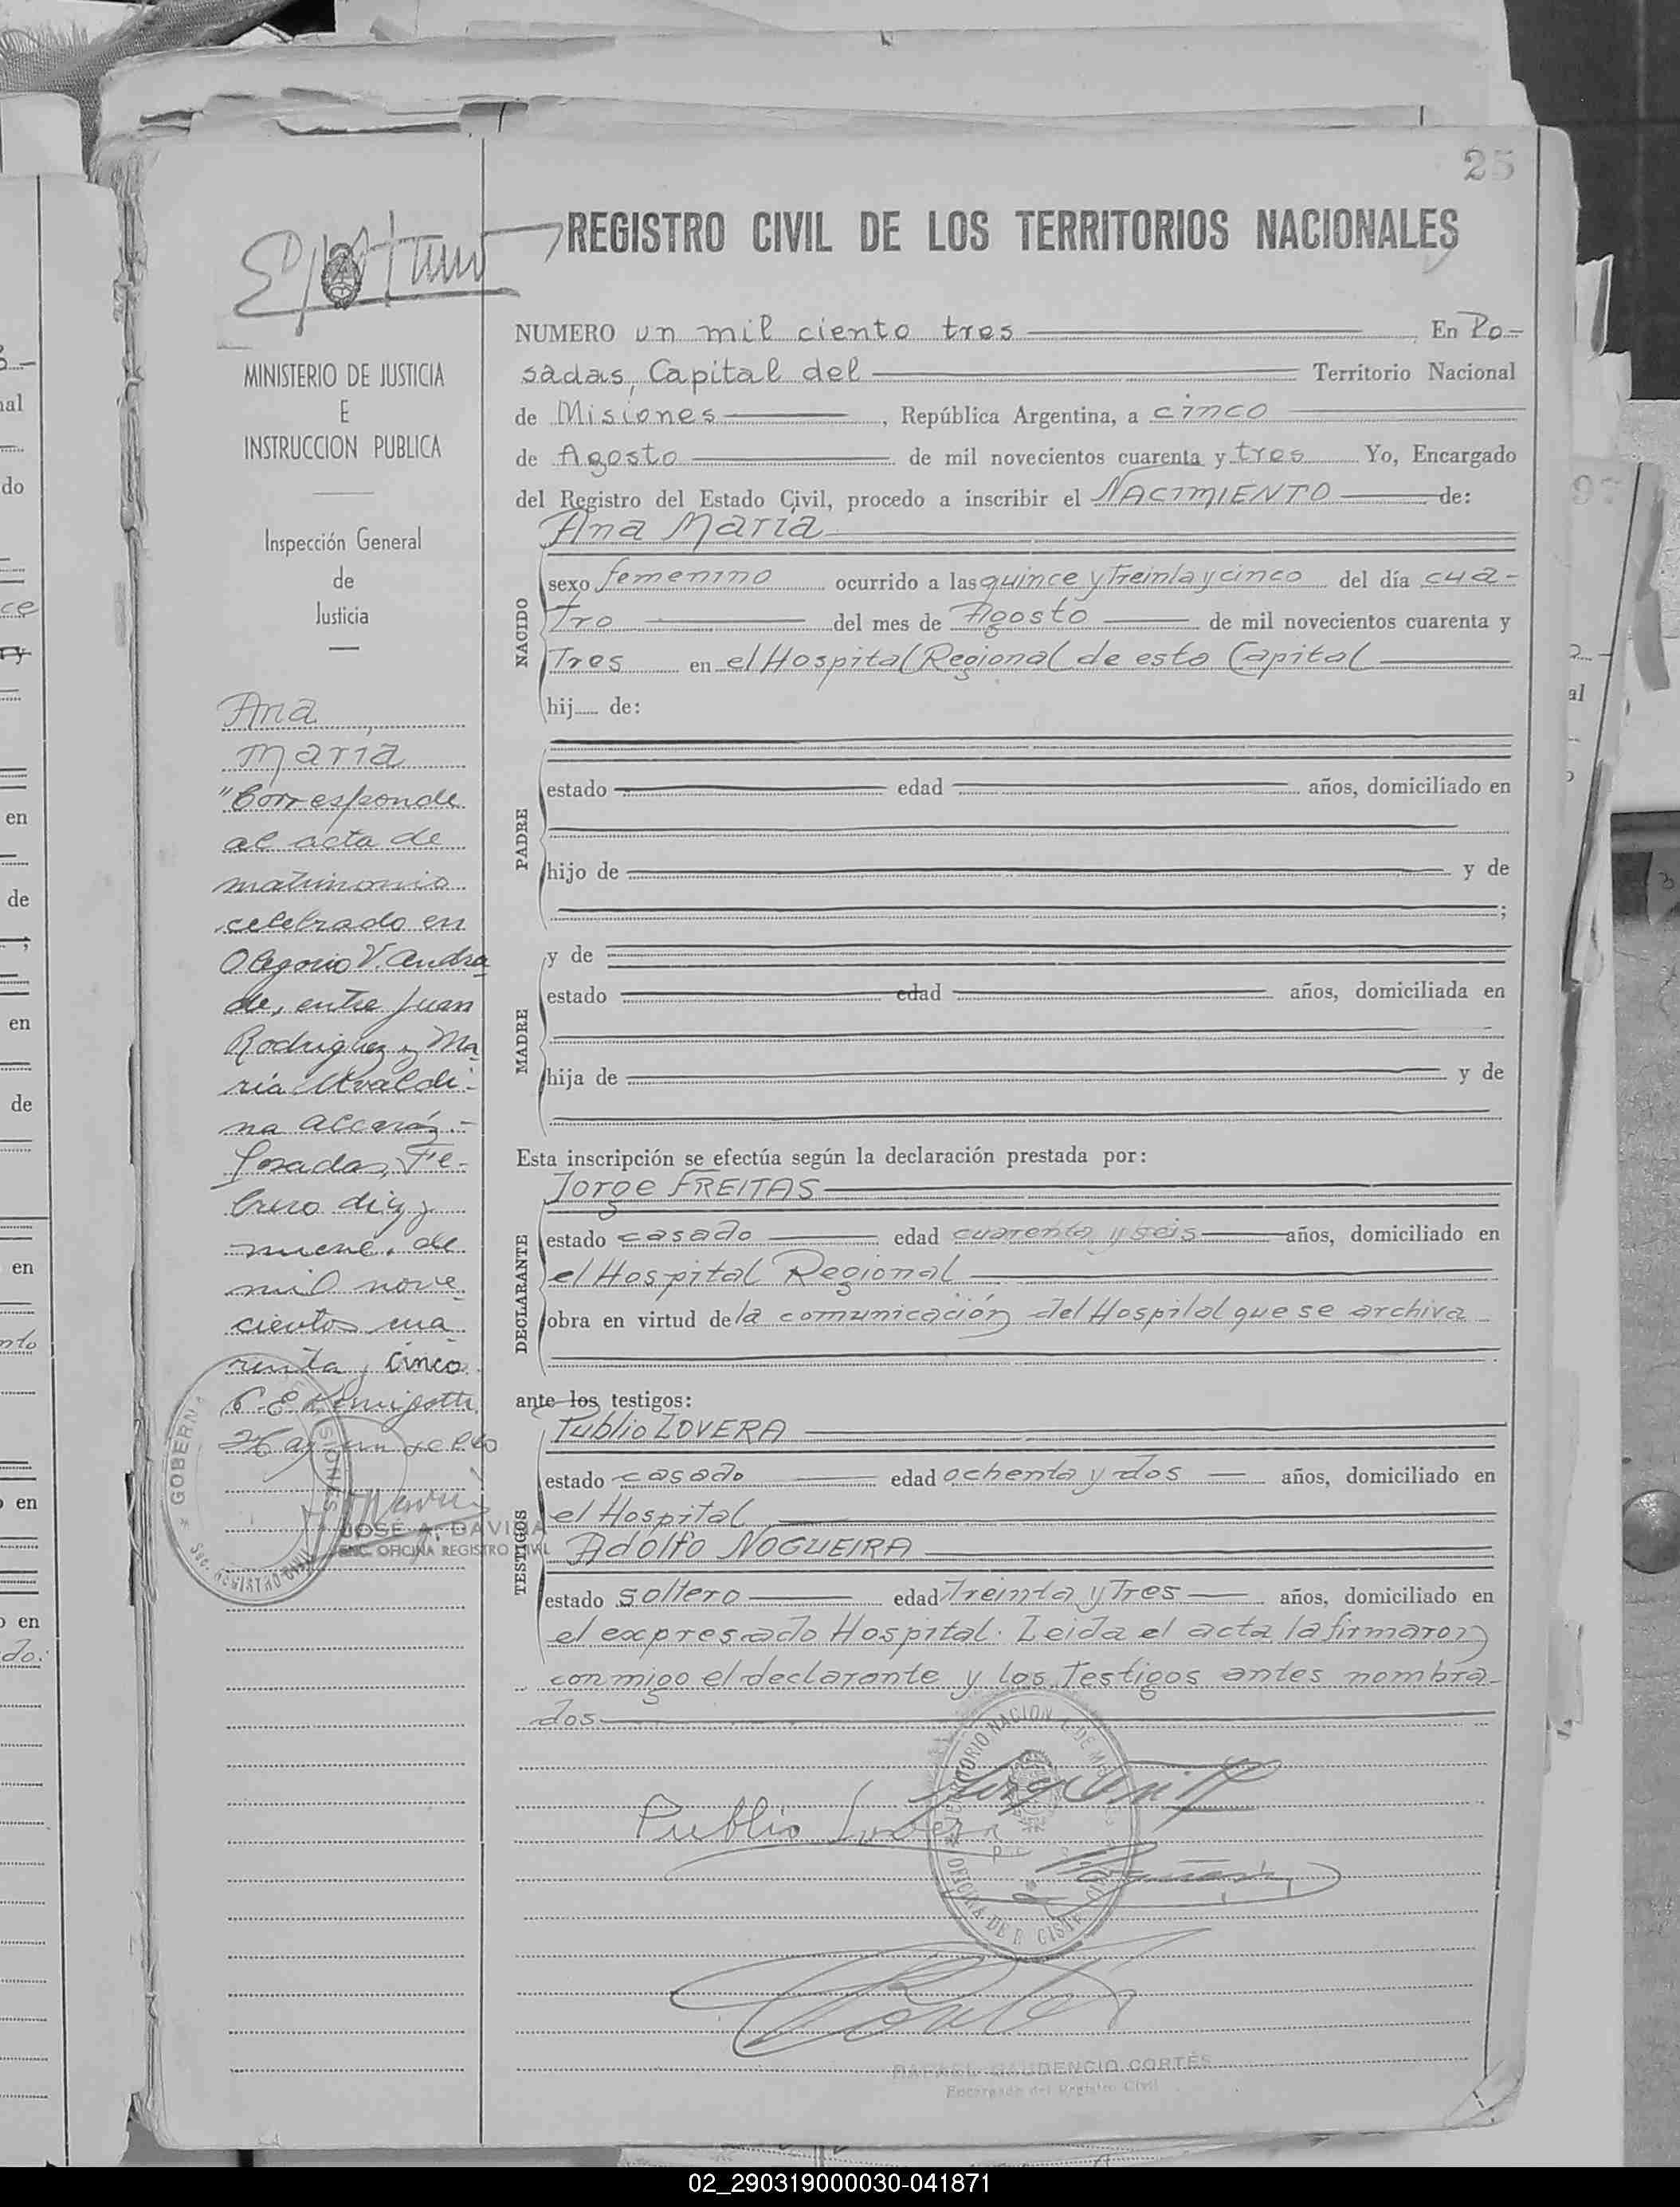 25
REGISTRO CIVIL DE LOS TERRITORIOS NACIONALES
MINISTERIO DE JUSTICIA
E
INSTRUCCION PUBLICA
Inspección General
de
Justicia
Ana
María
"Corresponde
al acta de
matrimonio
celebrado en
Olegorio V. Andra
de, entre Juan
Rodriguez y Ma
ría Uvaldi-
na Alcaráz.-
Posadas, Fe-
brero diez y
nueve, de
mil nove
cientos cua
renta y cinco.
JOSÉ A. DAVIÑA
ENC. OFICINA REGISTRO CIVIL
NUMERO un mil ciento tres En Po-
sadas, Capital del Territorio Nacional
de Misiones, República Argentina, a cinco
de Agosto de mil novecientos cuarenta y tres Yo, Encargado
del Registro del Estado Civil, procedo a inscribir el NACIMIENTO de:
Ana María
NACIDO
sexo femenino ocurrido a las quince y Treinta y cinco del día cua-
Tro del mes de Agosto de mil novecientos cuarenta y
Tres en el Hospital Regional de esta Capital
hij de:
PADRE
estado edad años, domiciliado en
hijo de y de
;
MADRE
y de
estado edad años, domiciliada en
hija de y de
Esta inscripción se efectúa según la declaración prestada por:
DECLARANTE
Jorge FREITAS
estado casado edad cuarenta y seis años, domiciliado en
el Hospital Regional
obra en virtud de la comunicación del Hospital que se archiva
ante los testigos:
TESTIGOS
Publio LOVERA
estado casado edad ochenta y dos años, domiciliado en
el Hospital
Adolfo NOGUEIRA
estado soltero edad Treinta y Tres años, domiciliado en
el expresado Hospital. Leida el acta la firmaron
conmigo el declarante y los Testigos antes nombra-
dos
Publio Lovera
RAFAEL GAUDENCIO CORTÉS
Encargado del Registro Civil
02_290319000030-041871